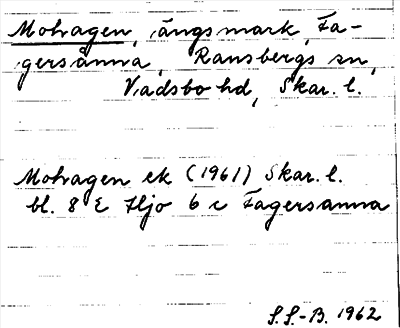 Molvagen, ängsmark, Fa-
gersanna, Ransbergs sn,
Vadsbo hd, Skar. l.
Molvagen ek (1961) Skar. l.
bl. 8 E Hjo 6 c Fagersanna
S.S.-B. 1962